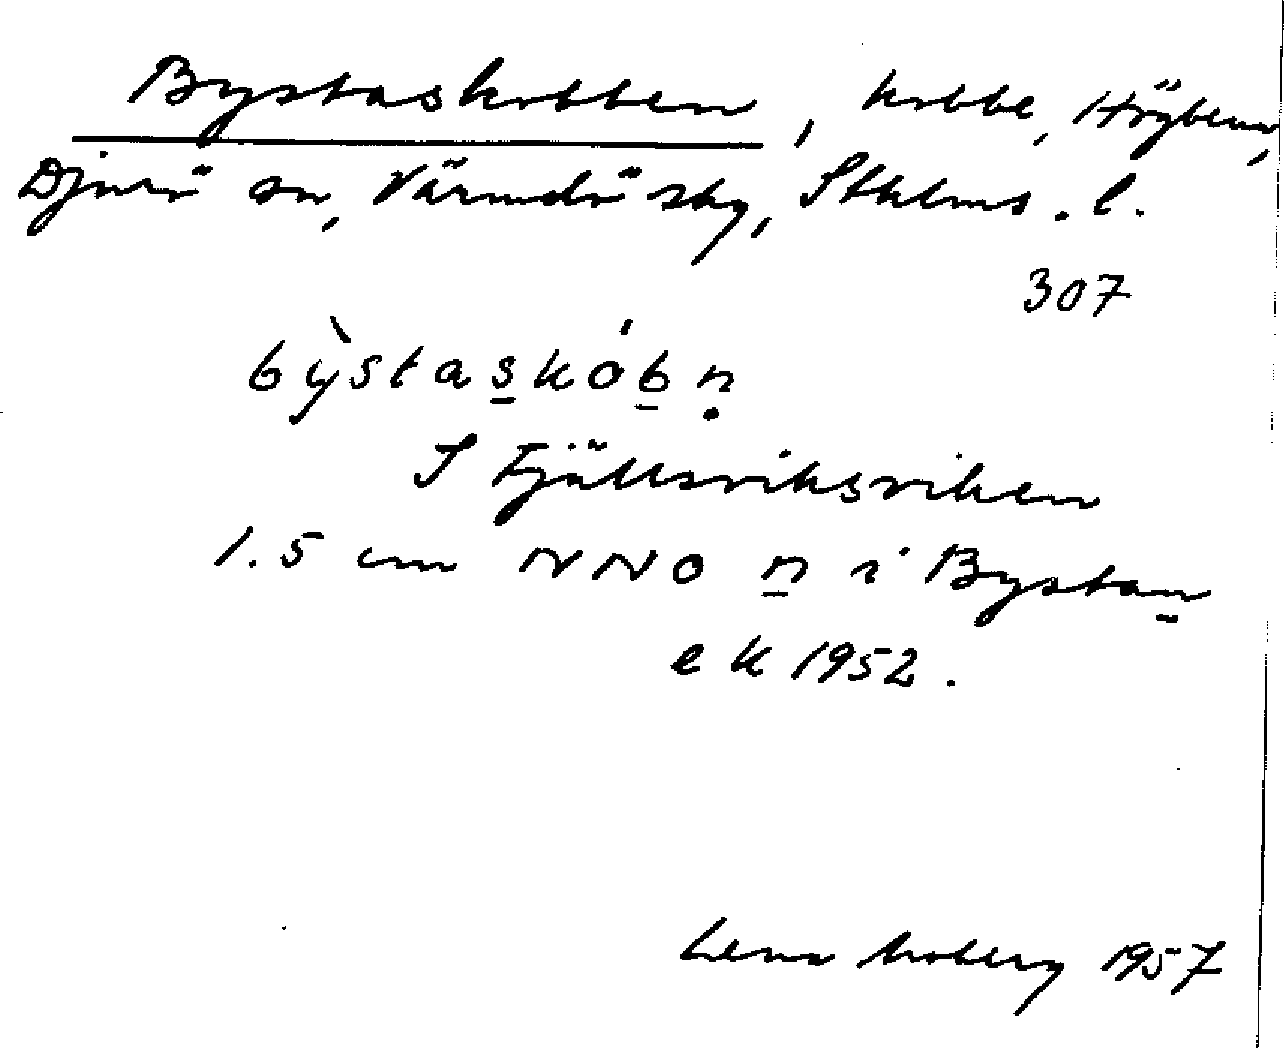 Bystaskobben, kobbe, Höjbenn,
Djurö sn, Värmdö skg, Sthlms. l.
307
bỳstaskóbn
I Fjällsviksviken
1.5 cm NNO n i Bystan
ek 1952.
Lena Moberg 1957